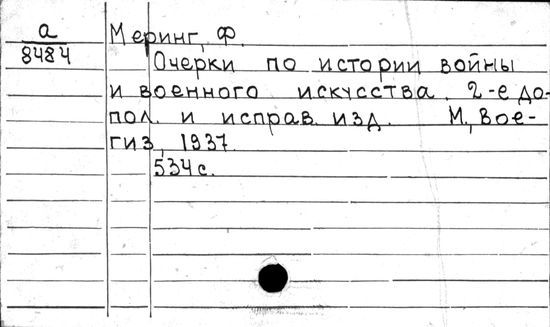 а
8484
Меринг, Ф.
Очерки по истории войны
и военного искусства. 2-е до-
пол. и исправ. изд. М., Вое-
гиз, 1937.
534 с.